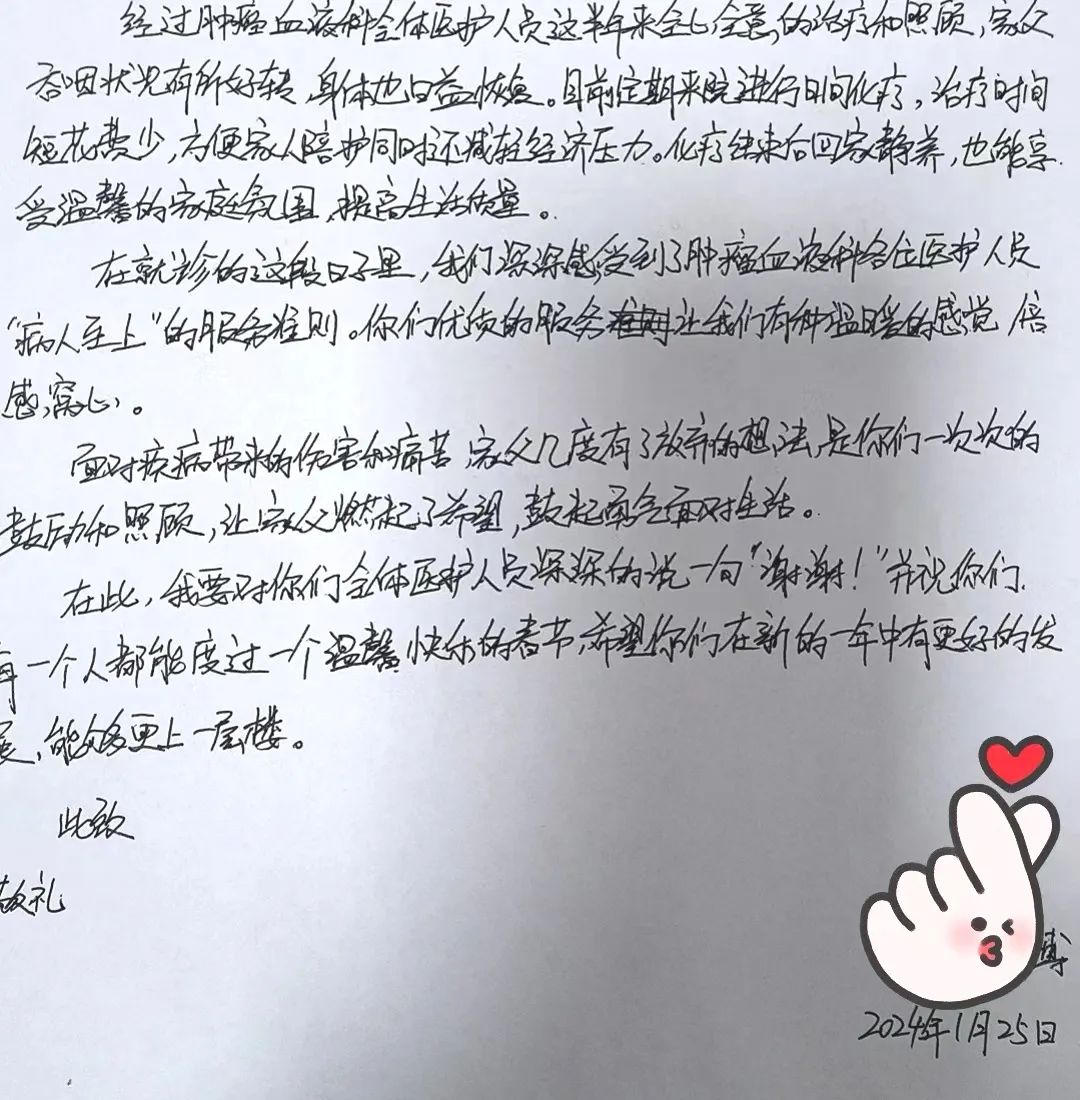 经过肿瘤血液科全体医护人员这半年来全心全意的治疗和照顾,家父
吞咽状况有所好转,身体也日益恢复。目前定期来院进行日间化疗,治疗时间
短花费少,方便家人陪护同时还减轻经济压力。化疗结束后回家静养,也能享
受温馨的家庭氛围,提高生活质量。
在就诊的这段日子里,我们深深感受到了肿瘤血液科各位医护人员
“病人至上”的服务准则。你们优质的服务让我们有种温暖的感觉,倍
感窝心。
面对疾病带来的伤害和痛苦,家父几度有了放弃的想法,是你们一次次的
鼓励和照顾,让家父燃起了希望,鼓起勇气面对生活。
在此,我要对你们全体医护人员深深的说一句“谢谢!”并祝你们
每一个人都能度过一个温馨快乐的春节,希望你们在新的一年中有更好的发
展,能够更上一层楼。
此致
敬礼
博
2024年1月25日